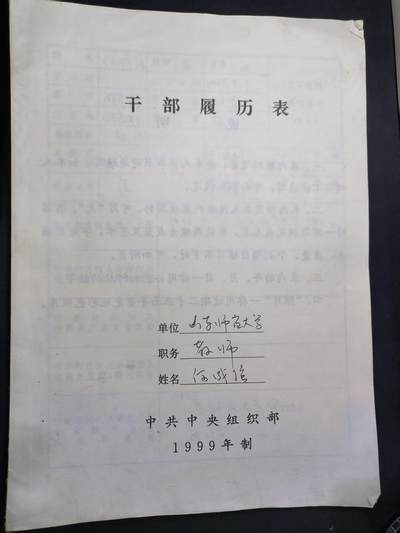 干部履历表
单位 山东师范大学
职务 教师
姓名 何
中共中央组织部
1999年制